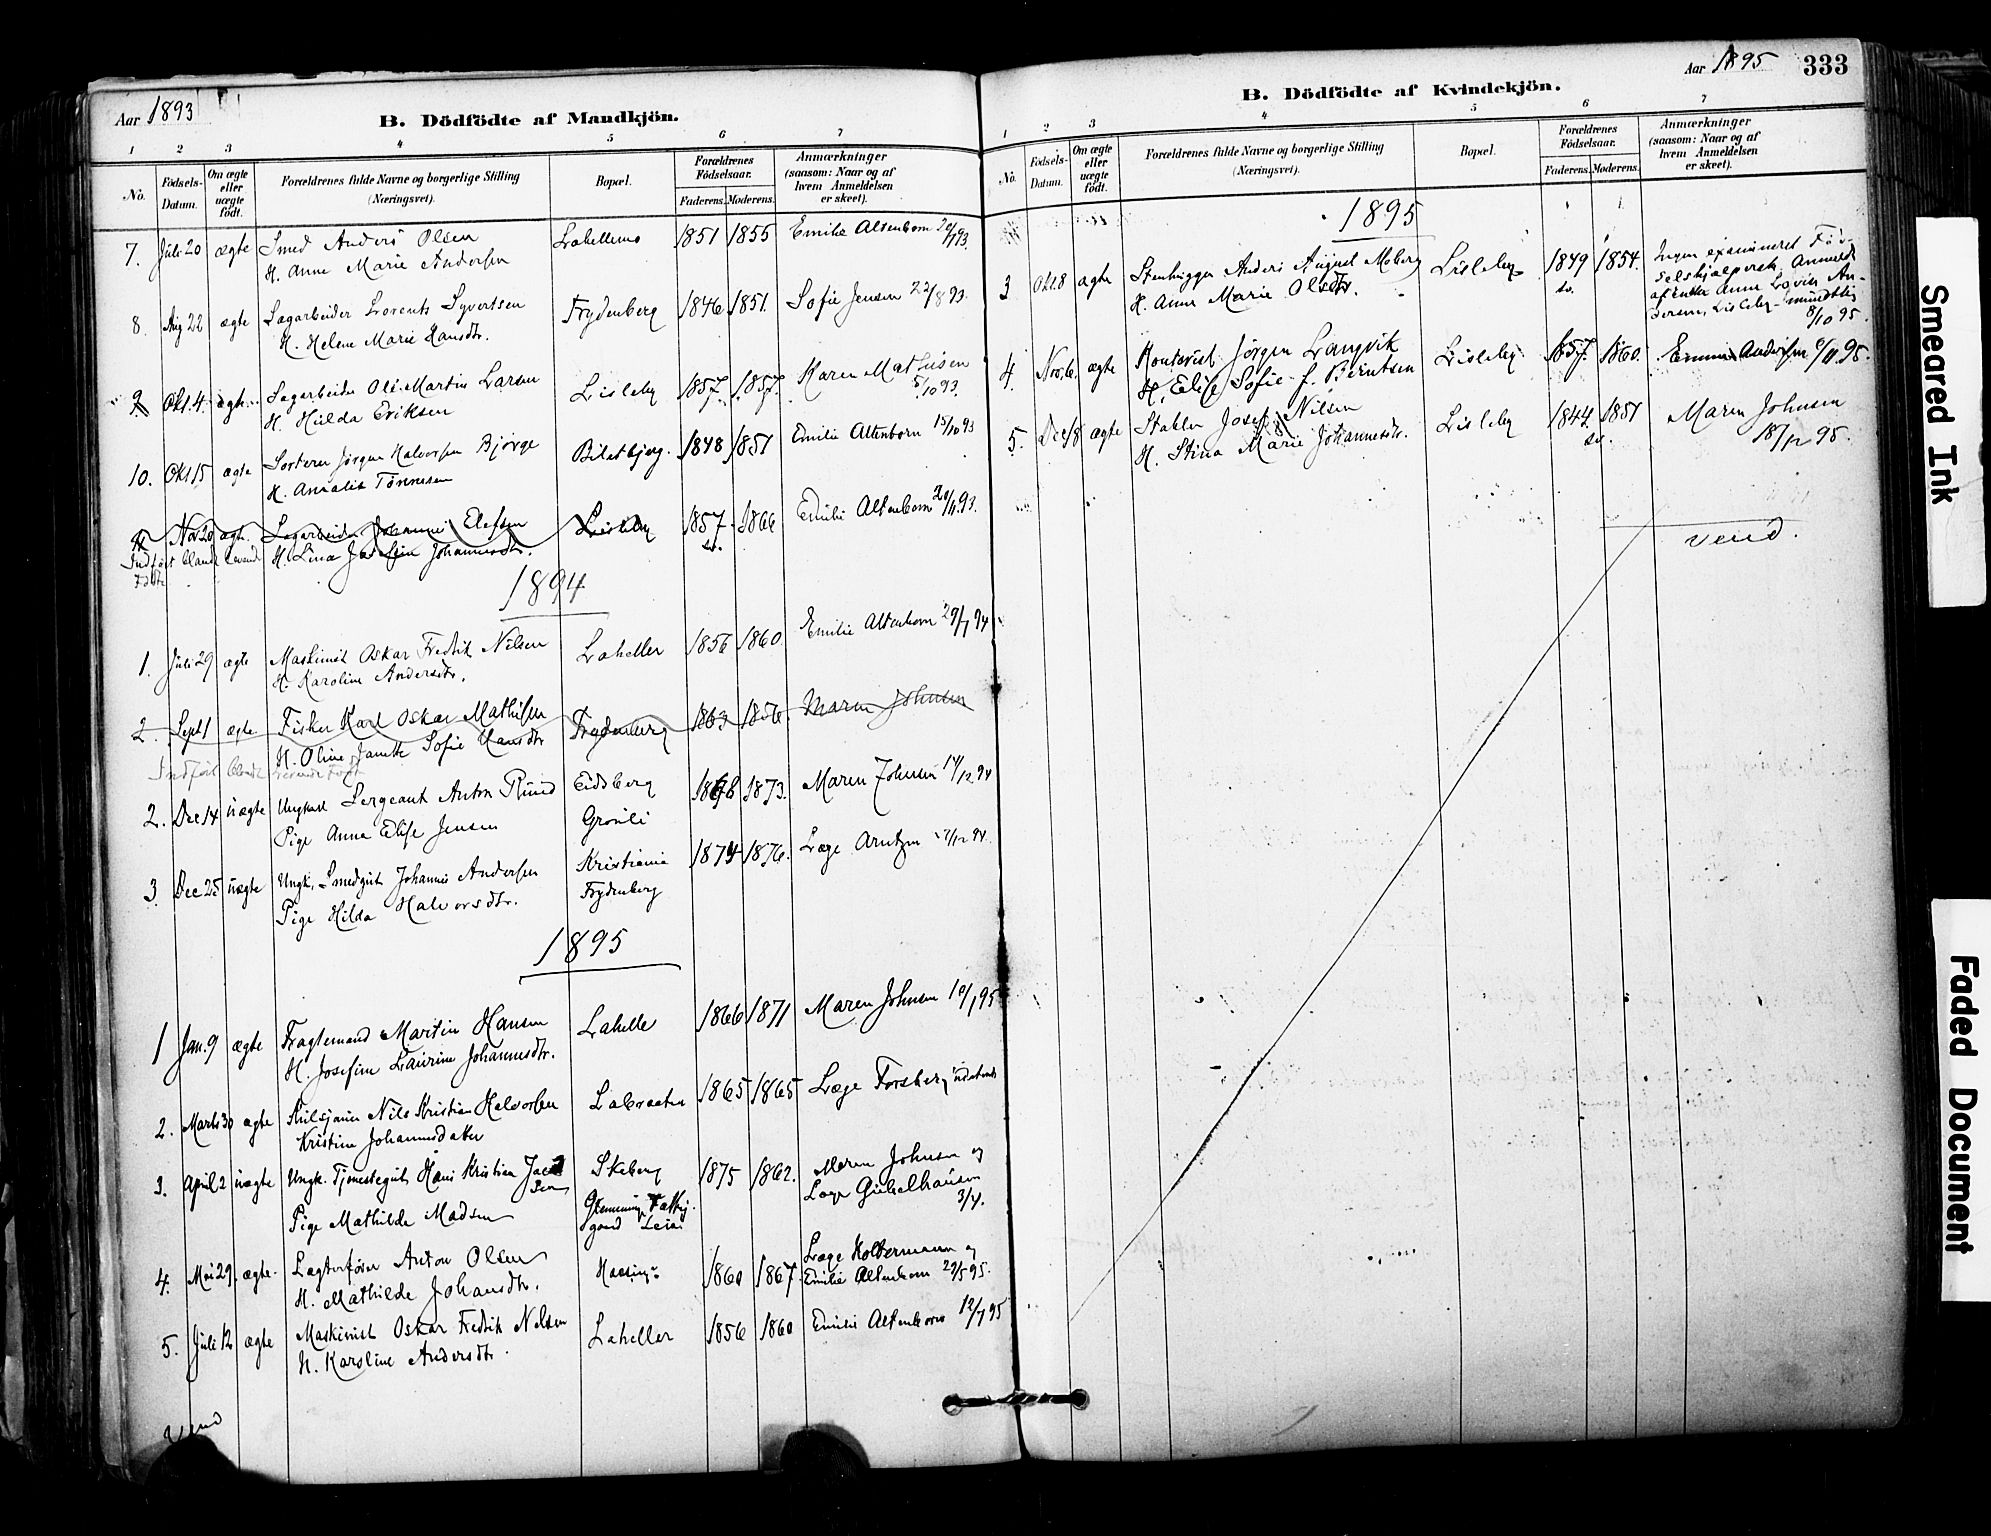 Aar 1893
B. Dödfödte af Mandkjön.
1 2 3 4 5 6 7
No. Födsels-Datum. Om ægte eller uægte födt. Forældrenes fulde Navne og borgerlige Stilling (Næringsvei). Bopæl. Forældrenes Födselsaar. Faderens. Moderens. Anmærkninger (saasom: Naar og af hvem Anmeldelsen er skeet).
7. Juli 20 ægte Smed Anders Olsen Lahellemo 1851 1855 Emilie Altenborn 20/7 93.
H. Anne Marie Andersen
8. Aug 22 ægte Sagarbeider Lorents Syvertsen Frydenberg 1846 1851. Sofie Jensen 22/8 93.
H. Helene Marie Hansdtr.
9 Okt. 4. ægte Sagarbeider Ole Martin Larsen Lisleby 1857. 1857. Karen Mathisen
H. Hulda Eriksen 5/10 93.
10. Okt 15 ægte Sorterer Jörgen Halvorsen Bjørge 1848 1851 Emilie Altenborn 15/10 93
H. Amalie Tönnesen
11 Nov 20 ægte. Sagarbeider Johannes Elefsen Lisleby 1857. 1866 Emilie Altenborn 20/11 93.
Indfört blandt levende H. Lina Josefin Johannesdtr. sv.
Födte
1894
1. Juli 29 ægte Maskinist Oskar Fredrik Nilsen Laheller 1856 1860 Emilie Altenborn 29/7 94
H. Karoline Andersdtr.
2. Sept 1 ægte. Fisker Karl Oskar Mathisen Frydenberg 1863 1856. Maren Johnsen
H. Oline Janette Sofie Hansdtr
Indfört blandt levende Födt
2. Dec 14 uægte Ungkarl Sergeant Anton Ruud Eidsberg 1868 1873. Maren Johnsen 14/12 94
Pige Anna Elise Jensen Grönli
3. Dec 25 uægte Ungk. Smedgut Johannes Andersen Kristiania 1874 1876. Læge Arntzen /12 94.
Pige Hilda Halvorsdtr. Frydenberg
1895
1 Jan. 9 ægte Fragtemand Martin Hansen Lahelle 1866 1871 Maren Johnsen 10/1 95
H. Josefine Laurine Johannesdtr.
2. Marts 30 ægte Nils Kristian Halvorsen Labraaten 1865 1865 Læge Forsberg
Kristine Johannesdatter
3. April 2 uægte Ungk. Tjenestegut Hans Kristian Jacob Skeberg 1875 1862. Maren Johnsen og
sen Læge Gulelhausen
Pige Mathilde Madsen Glemminge Fattig- 3/4.
gaard Leie
4. Mai 29. ægte. Lagterfører Anton Olsen 1860 1867. Læge Holtermann og
H. Mathilde Johansdtr. Emilie Altenborn 29/5 95.
5. Juli 12 ægte Maskinist Oskar Fredrik Nilsen Laheller 1856 1860 Emilie Altenborn 12/7 95
H. Karoline Andersdtr.
Vend
Aar 1895 333
B. Dödfödte af Kvindekjön.
1 2 3 4 5 6 7
No. Födsels-Datum. Om ægte eller uægte födt. Forældrenes fulde Navne og borgerlige Stilling (Næringsvei). Bopæl. Forældrenes Födselsaar. Faderens. Moderens. Anmærkninger (saasom: Naar og af hvem Anmeldelsen er skeet).
1895
3 Okt. 8 ægte Stenhugger Anders August Moberg Lisleby 1849 1854. Ingen examineret Föd-
H. Anne Marie Olsdtr. sv. selshjælperske, Anmeldt
af Enke Anne Lovise An-
dersen, Lisleby mundtlig
8/10 95.
4. Nov. 6. ægte Kontorist Jörgen Langvik Lisleby 1857. 1860. Emma Andersen 6/11 95.
H. Elise Sofie f. Berntsen
5. Dec 18 ægte Stabler Josef Nilsen Lisleby 1844. 1851 Maren Johnsen
H. Stina Marie Johannesdtr. sv. 18/12 95.
vend.
Smeared Ink
Faded Document